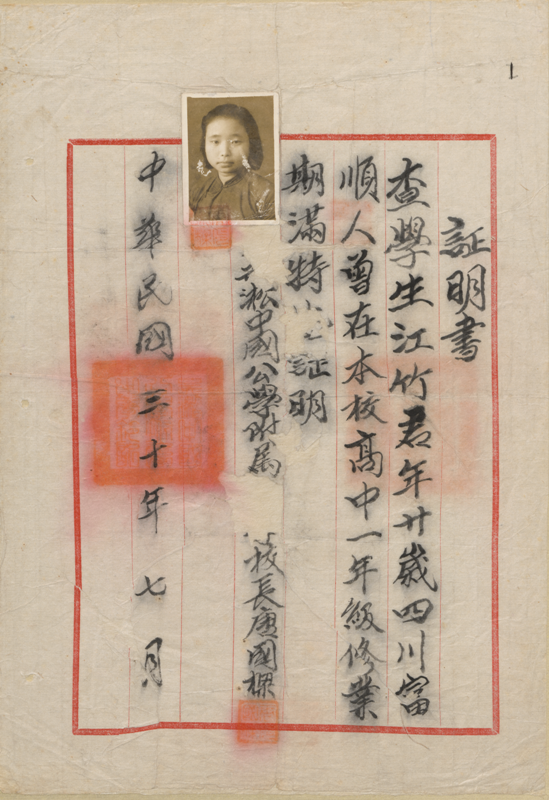 1
証明書
查學生江竹君年廿歲四川富
順人曾在本校高中一年級修業
期滿特 証明
淞中國公學附属 校長唐國樑
中華民國三十年七月